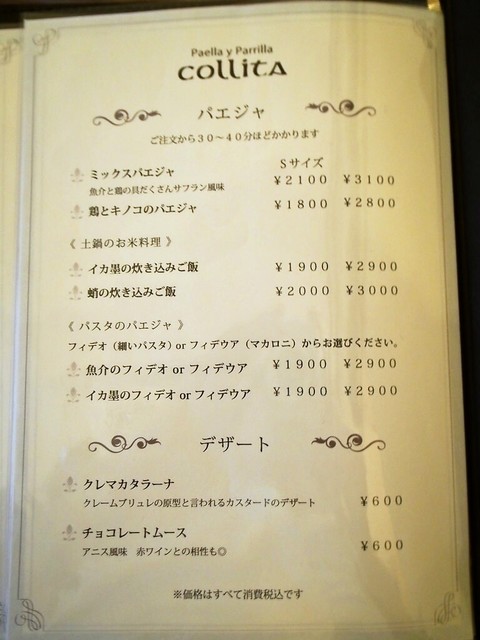 Paella y Parrilla
collita
パエジャ
ご注文から30～40分ほどかかります
Sサイズ
ミックスパエジャ ¥2100 ¥3100
魚介と鶏の具だくさんサフラン風味
鶏とキノコのパエジャ ¥1800 ¥2800
《 土鍋のお米料理 》
イカ墨の炊き込みご飯 ¥1900 ¥2900
蛸の炊き込みご飯 ¥2000 ¥3000
《 パスタのパエジャ 》
フィデオ（細いパスタ）or フィデウア（マカロニ）からお選びください。
魚介のフィデオ or フィデウア ¥1900 ¥2900
イカ墨のフィデオ or フィデウア ¥1900 ¥2900
デザート
クレマカタラーナ
クレームブリュレの原型と言われるカスタードのデザート ¥600
チョコレートムース
アニス風味　赤ワインとの相性も◎ ¥600
※価格はすべて消費税込です